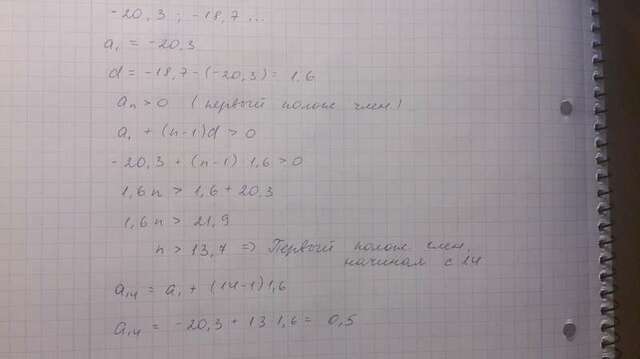 -20,3 ; -18,7 ...
a₁ = -20,3
d = -18,7-(-20,3) = 1,6
aₙ > 0 (первый полож член)
a₁ + (n-1)d > 0
-20,3 + (n-1) 1,6 > 0
1,6n > 1,6 + 20,3
1,6n > 21,9
n > 13,7 => Первый полож член,
начиная с 14
a₁₄ = a₁ + (14-1)1,6
a₁₄ = -20,3 + 13 1,6 = 0,5